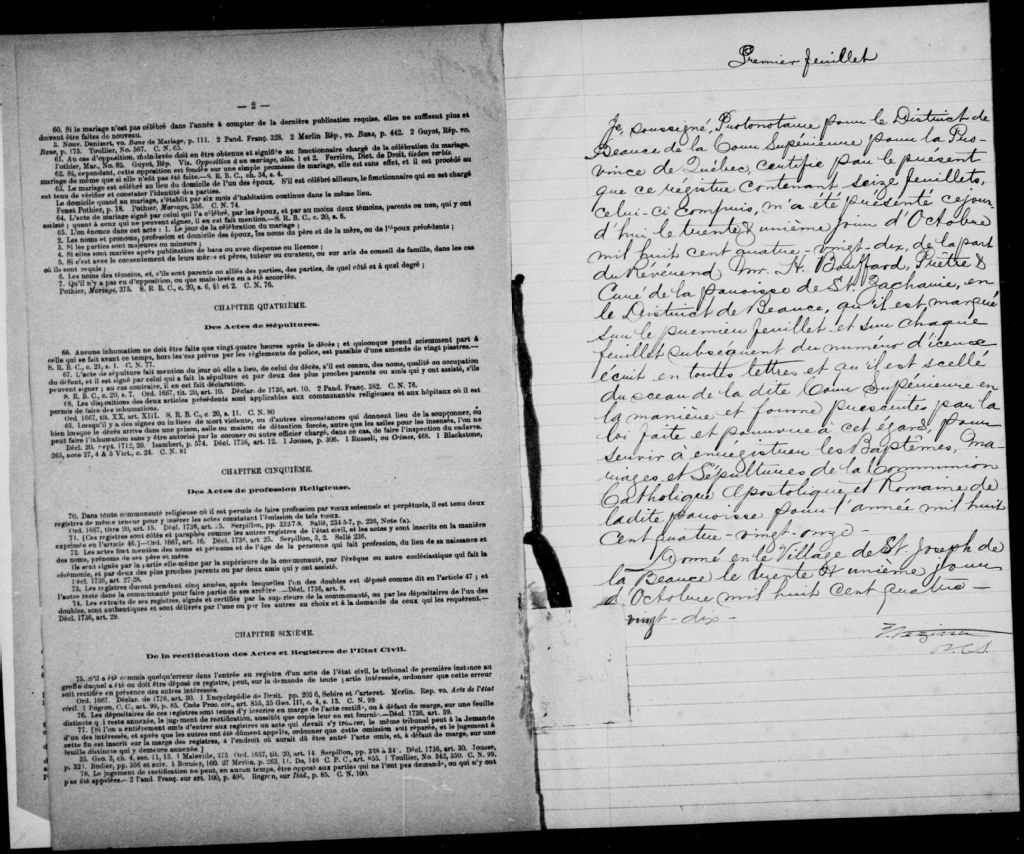 — 2 —
60. Si le mariage n'est pas célébré dans l'année à compter de la dernière publication requise, elles ne suffisent plus et
doivent être faites de nouveau.
3. Nouv. Denizart, vo. Bans de Mariage, p. 111. 2 Pand. Franç. 328. 2 Merlin Rép, vo. Bans, p. 442. 2 Guyot, Rép. vo.
Bans, p. 175. Toullier, No. 567. C. N. 65.
61. Au cas d'opposition, main-levée doit en être obtenue et signifiée au fonctionnaire chargé de la célébration du mariage.
Pothier, Mar., No. 83. Guyot, Rép. Vis. Opposition à un mariage, als. 1 et 2. Ferrière, Dict. de Droit, eisdem verbis.
62. Si, cependant, cette opposition est fondée sur une simple promesse de mariage, elle est sans effet, et il est procédé au
mariage de même que si elle n'eût pas été faite.—S. R. B. C., ch. 34, s. 4.
63. Le mariage est célébré au lieu du domicile de l'un des époux. S'il est célébré ailleurs, le fonctionnaire qui en est chargé
est tenu de vérifier et constater l'identité des parties.
Le domicile quant au mariage, s'établit par six mois d'habitation continue dans le même lieu.
Fenet Pothier, p. 18. Pothier, Mariage, 356. C. N. 74.
64. L'acte de mariage signé par celui qui l'a célébré, par les époux, et par au moins deux témoins, parents ou non, qui y ont
assisté ; quant à ceux qui ne peuvent signer, il en est fait mention.—S. R. B. C., c. 20, s. 6.
65. L'on énonce dans cet acte : 1. Le jour de la célébration du mariage ;
2. Les noms et prénoms, profession et domicile des époux, les noms du père et de la mère, ou de l'époux précédents ;
3. Si les parties sont majeures ou mineures ;
4. Si elles sont mariées après publication de bans ou avec dispense ou licence ;
5. Si c'est avec le consentement de leurs mères et pères, tuteur ou curateur, ou sur avis du conseil de famille, dans les cas
où ils sont requis ;
6. Les noms des témoins, et, s'ils sont parents ou alliés des parties, des parties, de quel côté et à quel degré ;
7. Qu'il n'y a pas eu d'opposition, ou que main-levée en a été accordée.
Pothier, Mariage, 375. S. R. B. C., c. 20, s. 6, §1 et 2. C. N. 76.
CHAPITRE QUATRIÈME.
Des Actes de Sépultures.
66. Aucune inhumation ne doit être faite que vingt quatre heures après le décès ; et quiconque prend sciemment part à
celle qui se fait avant ce temps, hors les cas prévus par les règlements de police, est passible d'une amende de vingt piastres.—
S. R. B. C., c. 21, s. 1. C. N. 77.
67. L'acte de sépulture fait mention du jour où elle a lieu, de celui du décès, s'il est connu, des noms, qualité ou occupation
du défunt, et il est signé par celui qui a fait la sépulture et par deux des plus proches parents ou amis qui y ont assisté, s'ils
peuvent signer ; au cas contraire, il en est fait déclaration.
S. R. B. C., c. 20, s. 7. Ord. 1667, tit. 20, art. 10. Déclar. de 1736, art. 10. 2 Pand. Franç. 382. C. N. 76.
68. Les dispositions des deux articles précédents sont applicables aux communautés religieuses et aux hôpitaux où il est
permis de faire des inhumations.
Ord. 1667, tit. XX, art. XIII. S. R. B. C., c. 20, s. 11. C. N. 80
69. Lorsqu'il y a des signes ou indices de mort violente, ou d'autres circonstances qui donnent lieu de la soupçonner, ou
bien lorsque le décès arrive dans une prison, asile ou maison de détention forcée, autre que les asiles pour les insensés, l'on ne
peut faire l'inhumation sans y être autorisé par le coroner ou autre officier chargé, dans ce cas, de faire l'inspection du cadavre.
Décl. 20, sept. 1712, 20. Isambert, p. 574. Décl. 1736, art. 12. 1 Jousse, p. 306. 1 Russell, on Crimes, 468. 1 Blackstone,
265, note 27, 4 & 5 Vict., c. 24. C. N. 81
CHAPITRE CINQUIÈME.
Des Actes de profession Religieuse.
70. Dans toute communauté religieuse où il est permis de faire profession par vœux solennels et perpétuels, il est tenu deux
registres de même teneur pour y insérer les actes constatant l'émission de tels vœux.
Ord. 1667, titre 20, art. 15. Décl. 1736, art. 25. Serpillon, pp. 332-7-8. Sallé, 234-5-7, p. 236, Note (a).
71. (Ces registres sont côtés et paraphés comme les autres registres de l'état civil, et les actes y sont inscrits en la manière
exprimée en l'article 46.)—Ord. 1667, art. 16. Décl. 1736, art. 25. Serpillon, 3, 2. Sallé 236.
72. Les actes font mention des noms et prénoms et de l'âge de la personne qui fait profession, du lieu de sa naissance et
des noms, prénoms de ses père et mère
Ils sont signés par la partie elle-même par la supérieure de la communauté, par l'évêque ou autre ecclésiastique qui fait la
cérémonie, et par deux des plus proches parents ou par deux amis qui y ont assisté.
Décl. 1736, art. 27-28.
73. Les registres durent pendant cinq années, après lesquelles l'un des doubles est déposé comme dit en l'article 47 ; et
l'autre reste dans la communauté pour faire partie de ses archives.—Décl. 1736, art. 8.
74. Les extraits de ses registres, signés et certifiés par la supérieure de la communauté, ou par les dépositaires de l'un des
doubles, sont authentiques et sont délivrés par l'une ou par les autres au choix et à la demande de ceux qui les requèrent.—
Décl. 1736, art. 29.
CHAPITRE SIXIÈME.
De la rectification des Actes et Registres de l'Etat Civil.
75. S'il a été commis quelqu'erreur dans l'entrée au registre d'un acte de l'état civil, le tribunal de première instance au
greffe duquel a été ou doit être déposé ce registre, peut, sur la demande de toute partie intéressée, ordonner que cette erreur
soit rectifiée en présence des autres intéressés.
Ord. 1667. Déclar. de 1736, art. 30. 1 Encyclopédie de Droit. pp. 205 6, Sebire et Carteret. Merlin. Rep. vo. Acte de l'état
civil. 1 Pogron, C. C., art. 99, p. 85. Code Proc. civ., art. 855, 35 Geo. III, c. 4, s. 13. C. N. 99
76. Les dépositaires de ces registres sont tenus d'y inscrire en marge de l'acte rectifié, ou à défaut de marge, sur une feuille
distincte qui reste annexée, le jugement de rectification, aussitôt que copie leur en est fournie.—Décl. 1736, art. 39.
77. [Si l'on a entièrement omis d'entrer aux registres un acte qui devait s'y trouver, le même tribunal peut à la demande
d'un des intéressés, et après que les autres ont été dûment appelés, ordonner que cette omission soit réparée, et le jugement à
cette fin est inscrit sur la marge des registres, à l'endroit où aurait dû être entré l'acte omis, et, à défaut de marge, sur une
feuille distincte qui y demeure annexée.]
35. Geo. 3, ch. 4, sec. 11, 13. 1 Maleville, 375 Ord. 1667, tit. 20, art. 14. Serpillon, pp. 338 à 34 . Décl. 1736, art. 30. Jousse,
p. 321. Rodier, pp. 356 et suiv. 1 Bornier, 160. 27 Merlin, p. 263, 11. Do, 148 C. P. C., art. 855. 1 Toullier, No. 342, 350. C. N. 99.
78. Le jugement de rectification ne peut, en aucun temps, être opposé aux parties qui ne l'ont pas demandé, ou qui n'y ont
pas été appelées.—2 Pand. Franç. sur art. 100, p. 406. Rogron, sur Ibid., p. 85. C. N. 100.
Premier feuillet
Je, soussigné, Protonotaire pour le District de
Beauce de la Cour Supérieure pour la Pro-
vince de Québec, certifie par le présent
que ce registre contenant seize feuillets,
celui-ci compris, m'a été présenté ce jour-
d'hui le trente & unième jour d'Octobre
mil huit cent quatre vingt-dix, de la part
du Révérend Mr. H. Bouffard, Prêtre &
Curé de la paroisse de St. Zacharie, en
le District de Beauce, qu'il est marqué
sur le premier feuillet et sur chaque
feuillet subséquent du numéro d'iceux
écrit en toutes lettres et qu'il est scellé
du sceau de la dite Cour Supérieure en
la manière et forme prescrites par la
loi faite et pourvue à cet égard, pour
servir à enregistrer les Baptêmes, Ma-
riages, et Sépultures de la Communion
Catholique Apostolique et Romaine de
la dite paroisse pour l'année mil huit
cent quatre-vingt-onze
Donné en le Village de St. Joseph de
la Beauce le trente & unième jour
d'Octobre mil huit cent quatre—
vingt-dix-
P.C.S.